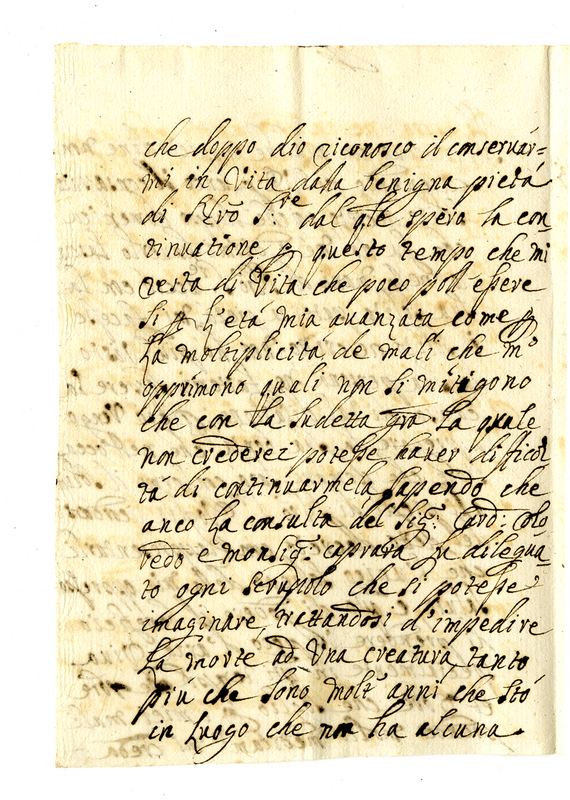 che doppo dio riconosco il conservar=
mi in Vita dalla benigna pietá
di S.tro S.re dal qle spero la con
tinuatione p questo tempo che mi
resta di Vita che poco poll essere
si p l'etá mia avanzata come p
la moltiplicitá de mali che m'
opprimono quali non si mitigono
che con la sudetta gra la quale
non crederei potesse haver difficol
tá di continuarmela sapendo che
anco la consulta del Sig.: Card: Colo
redo e monsig.: caprara ha dilegua
to ogni scrupolo che si potesse
imaginare, trattandosi d'impedire
la morte ad Una creatura, tanto
piú che sono molt' anni che stó
in luogo che non ha alcuna